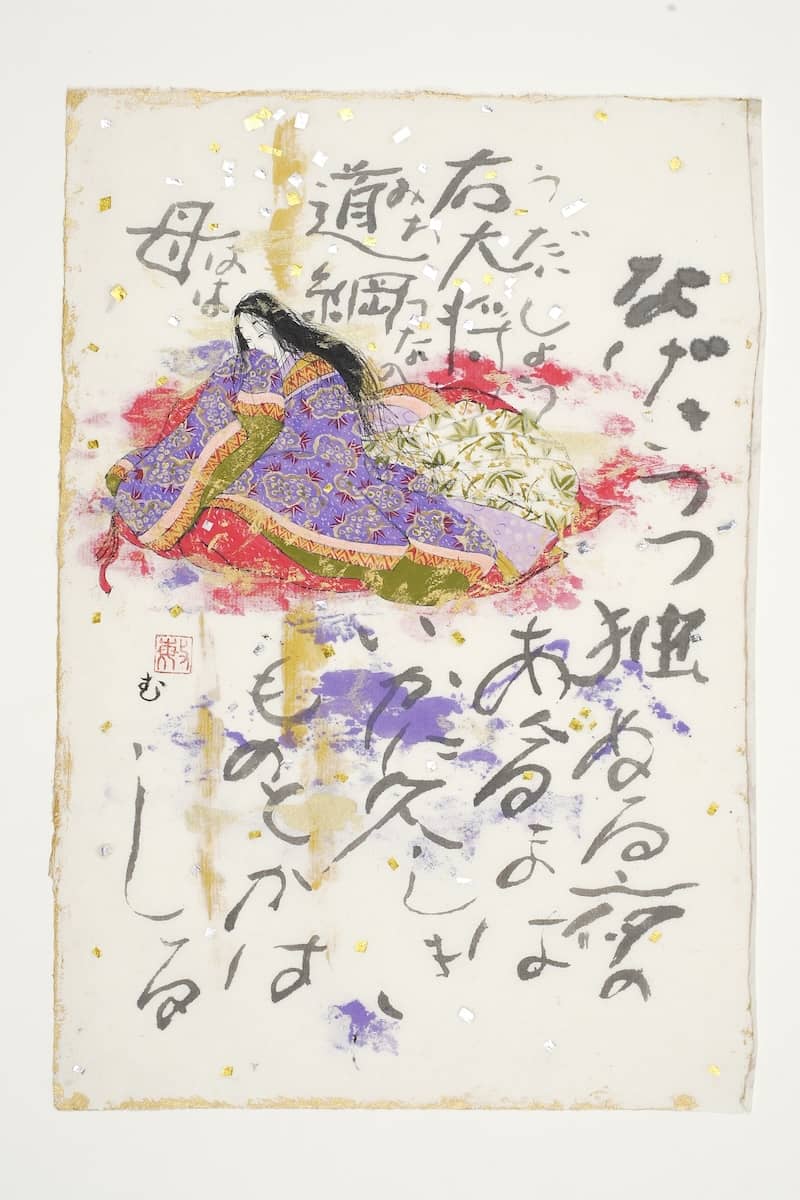 なげきつつ独ぬる夜の
あくるまは
いかに久しき
ものとかは
しる
うだいしょう
右大将
みちつなの
道綱
はは
母
む